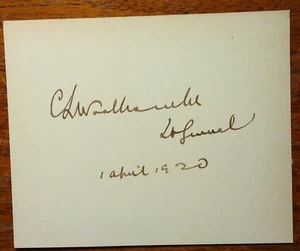 CLWoollcombe
Lt General
1 April 1920